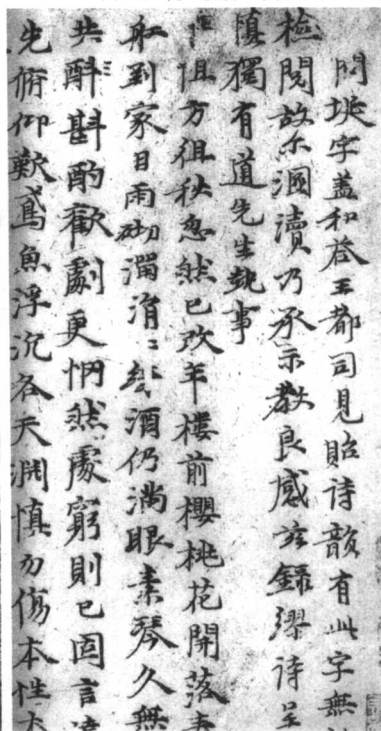 問埏字蓋和答王都司見貽诗韻有此字無
檢閱故尔涸瀆乃承示教良感玆錄謬诗呈
慎獨有道先生執事
徂方徂秋忽然已改年樓前櫻桃花開落
船到家日雨砌濁涓ミ綠酒仍满眼素琴久無
共酬斟酌歡劇更惘然處窮則已固言
先俯仰歎鳶魚浮沉各天渊慎勿傷本性